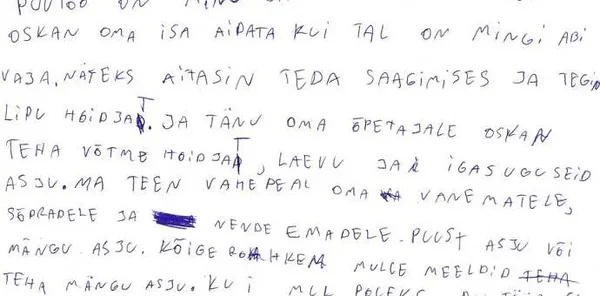 PUUTÖÖ ON MINU
OSKAN OMA ISA AIDATA KUI TAL ON MINGI ABI
VAJA. NÄTEKS AITASIN TEDA SAAGIMISES JA TEGIN
LIPU HOIDJAT. JA TÄNU OMA ÕPETAJALE OSKAN
TEHA VÕTME HOIDJAT, LAEVU JA IGASUGUSEID
ASJU. MA TEEN VAHEPEAL OMA VANEMATELE,
SÕPRADELE JA NENDE EMADELE. PUUST ASJU VÕI
MÄNGU ASJU. KÕIGE ROHKEM MULLE MEELDID TEHA
TEHA MÄNGU ASJU. KUI MUL POLEKS